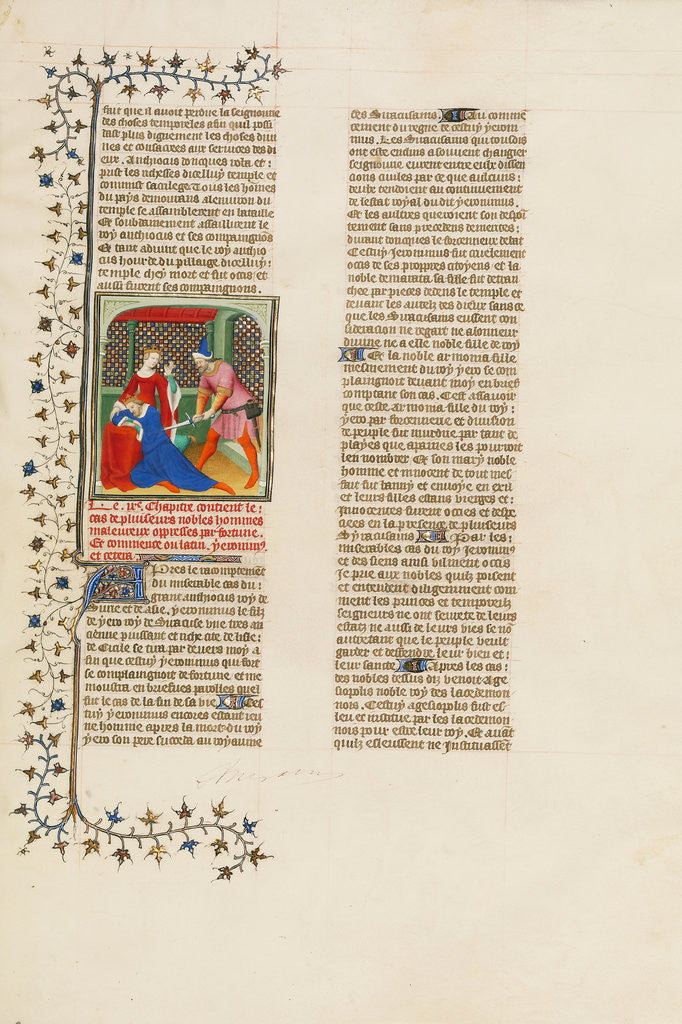 fait que il avoit perdue la seignourie
des choses temporeles afin quil possi
dast plus dignement les choses divi
nes et consacrees aux services des di
eux. Anthiocus doncques vola et :
prist les richesses dicelluy temple et
commist sacrilege. Tous les hommes
du pays demourans alenviron du
temple se assemblerent en bataille
Et soubdainement assaillirent le
roy anthiocus et ses compaignons
Et tant advint que le roy anthio
cus hourde du pillaige dicelluy :
temple chey mort et fut occis et
aussi furent ses compaignons.
Le .iiie. Chapitre contient le :
cas de pluiseurs nobles hommes
maleureux oppresses par fortune.
Et commence ou latin. yeronimus
et cetera
Apres le racomptement
du miserable cas du :
grant anthiocus roy de
Surie et de asie, yeronimus le filz
de yero roy de Siracuse une tres an
cienne puissant et riche cite de lisle :
de Cicile se tira par devers moy a
fin que cestuy yeronimus qui fort
se complaignoit de fortune et me
moustra en briefves parolles quel
fut le cas de la fin de sa vie Ces
tuy yeronimus encores estant jeu
ne homme apres la mort du roy
yero son pere succeda au royaume
des Siracusains. Au comme
cement du regne de cestuy yeroni
mus. Les Siracusains qui tousdis
ont este enclins a souvent changier
seignourie eurent entre eulx dissen
cions civiles par ce que aulcuns :
deulx tendoient au continuement
de lestat royal du dit yeronimus.
Et les aultres queroient son despoi
tement sans precedens demerites :
durant doncques le forcenneux debat
Cestuy Jeronimus fut cruelement
occis de ses propres citoyens et la
noble demarata sa fille fut detran
chee par pieces dedens le temple et
devant les autelz des dieux sans ce
que les Siracusains eussent con
sideracion ne regart ne alonneur
divine ne a elle noble fille de roy
Et la noble armonia fille
mesmement du roy yero se com
plaingnoit devant moy en brief
comptant son cas. Cest assavoir
que ceste armonia fille du roy :
yero par forcennerie et division
de peuple fut murdrie par tant de
playes que apaines les pourroit
len nombrer Et son mary noble
homme et innocent de tout mes
fait fut banny et envoye en exil
et leurs filles estans vierges et :
Innocentes furent occies et despe
ciees en la presence de pluiseurs
Syracusains Par les :
miserables cas du roy Jeronimus
et des siens ainsi vilment occis
Je prie aux nobles quilz poisent
et entendent diligentement com
ment les princes et temporelz
seigneurs ne ont seurete de leurs
estatz ne aussi de leurs vies se nõ
autretant que le peuple veult
garder et deffendre leur bien et :
leur sante Apres les cas :
des nobles dessus diz benoit age
siopolis noble roy des lacedemon
nois. Cestuy agesiopolis fust es
leu et institue par les lacedemon
nois pour estre leur roy. Et avãt
quilz esleussent ne Instituassent